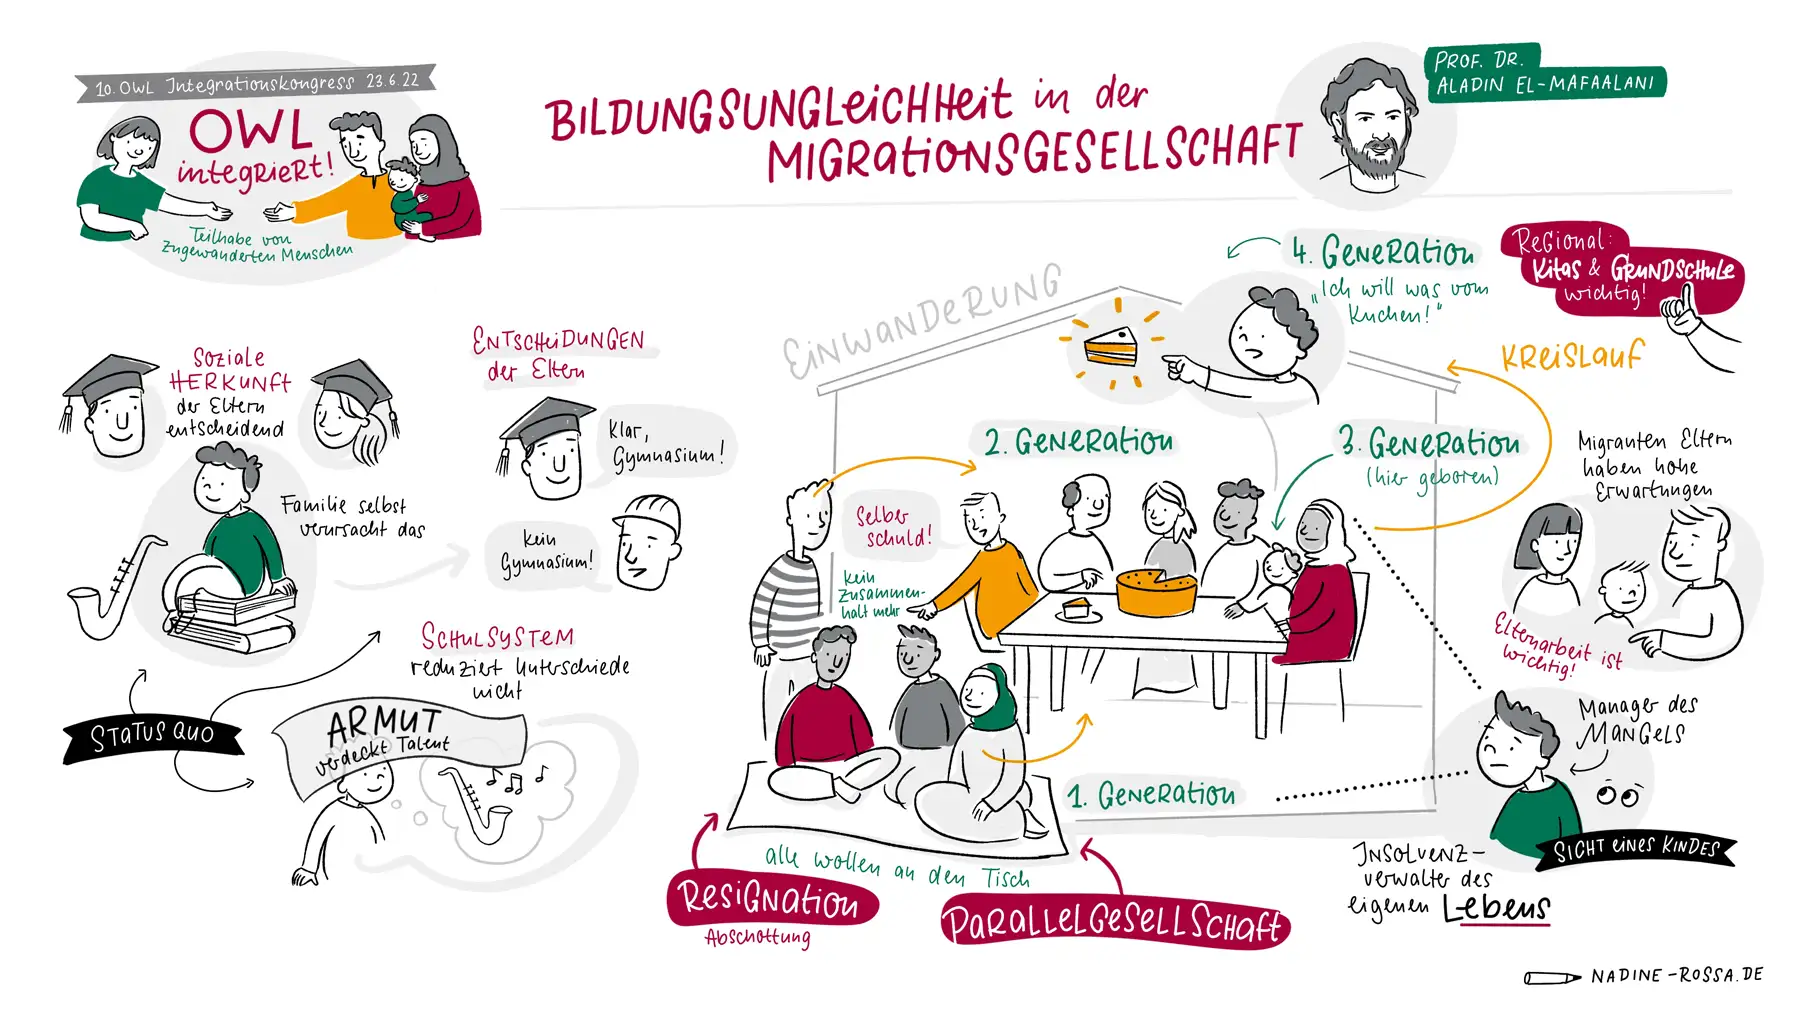 10. OWL Integrationskongress 23.6.22
OWL
integriert!
Teilhabe von
zugewanderten Menschen
BILDUNGSUNGLEICHHEIT in der
MIGRATIONSGESELLSCHAFT
PROF. DR.
ALADIN EL-MAFAALANI
SOZIALE
HERKUNFT
der Eltern
entscheidend
Familie selbst
verursacht das
ENTSCHEIDUNGEN
der Eltern
Klar,
Gymnasium!
kein
Gymnasium!
SCHULSYSTEM
reduziert Unterschiede
nicht
STATUS QUO
ARMUT
verdeckt Talent
EINWANDERUNG
4. GENERATION
„Ich will was vom
Kuchen!"
REGIONAL:
KITAS & GRUNDSCHULE
wichtig!
KREISLAUF
2. GENERATION
3. GENERATION
(hier geboren)
Selber
schuld!
kein
Zusammen-
halt mehr
1. GENERATION
alle wollen an den Tisch
RESIGNATION
Abschottung
PARALLELGESELLSCHAFT
Migranten Eltern
haben hohe
Erwartungen
Elternarbeit ist
wichtig!
Manager des
MANGELS
SICHT EINES KINDES
INSOLVENZ-
verwalter des
eigenen Lebens
NADINE-ROSSA.DE